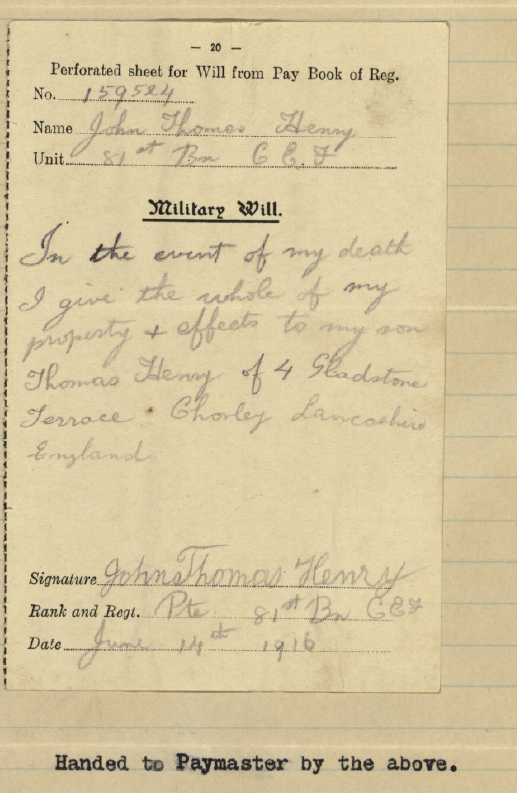 — 20 —
Perforated sheet for Will from Pay Book of Reg.
No. 159524
Name John Thomas Henry
Unit 81st Bn C E F
Military Will.
In the event of my death
I give the whole of my
property + effects to my son
Thomas Henry of 4 Gladstone
Terrace Chorley Lancashire
England
Signature John Thomas Henry
Rank and Regt. Pte 81st Bn CEF
Date June 14th 1916
Handed to Paymaster by the above.